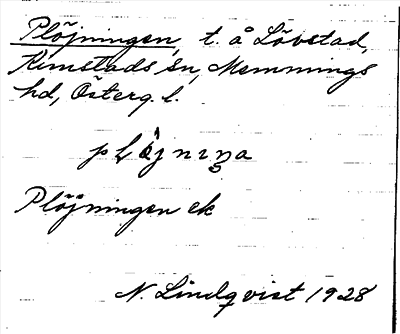 Plöjningen, t. å Lövstad,
Kimstads sn, Memmings
hd, Österg. l.
plöjnıŋa
Plöjningen ek
N. Lindqvist 1928